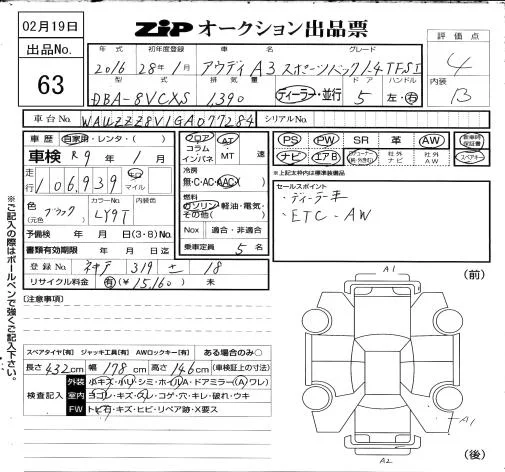 02月19日
出品No.
63
ZIP オークション出品票
評価点
4
内装
B
年式 初年度登録 車名 グレード
2016 28年1月 アウディA3 スポーツバック1.4TFSI
型式 排気量 ドア ハンドル
DBA-8VCXS 1,390 ディーラー・並行 5 左・右
車台No. WAUZZZ8V1GA077284 シリアルNo.
車歴 自家用・レンタ・( )
車検 R9年1月
走行 106,939 km マイル
色 ブラック (元色) カラーNo. LY9T 内装色
予備検 年 月 日(3・6)No.
書類有効期限 年 月 日迄
登録No. 神戸 319 せ 18
リサイクル料金 有(¥15,160) 未
フロア コラム インパネ AT MT 速
冷房 無・C・AC・AAC( )
燃料 ガソリン・軽油・電気・その他( )
Nox 適合・非適合
乗車定員 5名
PS PW SR 革 AW
ナビ エアB 社外ナビ 社外AW
新車時保証書
スペアキー
※上記太枠内は標準装備品
セールスポイント
・ディーラー車
・ETC・AW
[注意事項]
スペアタイヤ[有] ジャッキ工具[有] AWロックキー[有] ある場合のみ○
長さ432cm 幅178cm 高さ146cm (車検証上の寸法)
検査記入
外装 小キズ・小リ・シミ・ホイルA・ドアミラー(A)ワレ)
室内 ヨゴレ・キズ・スレ・コゲ・穴・キレ・破れ・ウキ
FW トビ石・キズ・ヒビ・リペア跡・X要ス
※ご記入の際はボールペンで強くご記入下さい。
A1
(前)
A1
A2
(後)